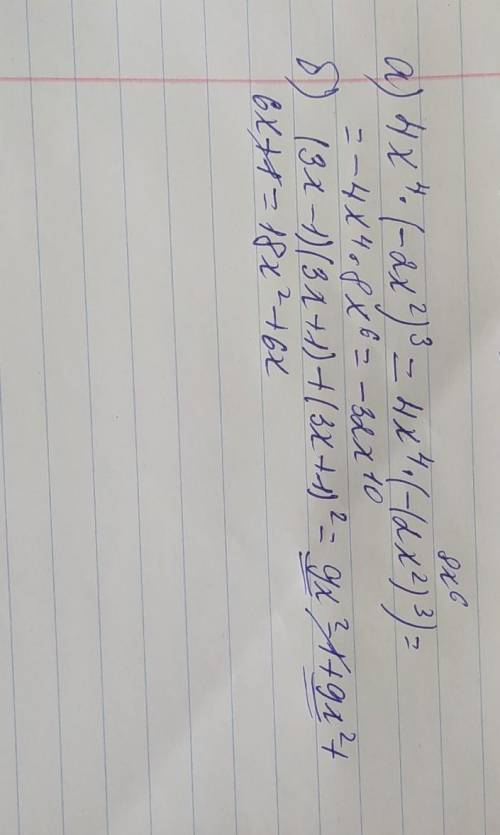 8x⁶
а) 4x⁴·(-2x²)³ = 4x⁴·(-(2x²)³) =
= -4x⁴·8x⁶ = -32x¹⁰
б) (3x-1)(3x+1)+(3x+1)² = 9x²-1+9x²+
6x+1 = 18x²+6x